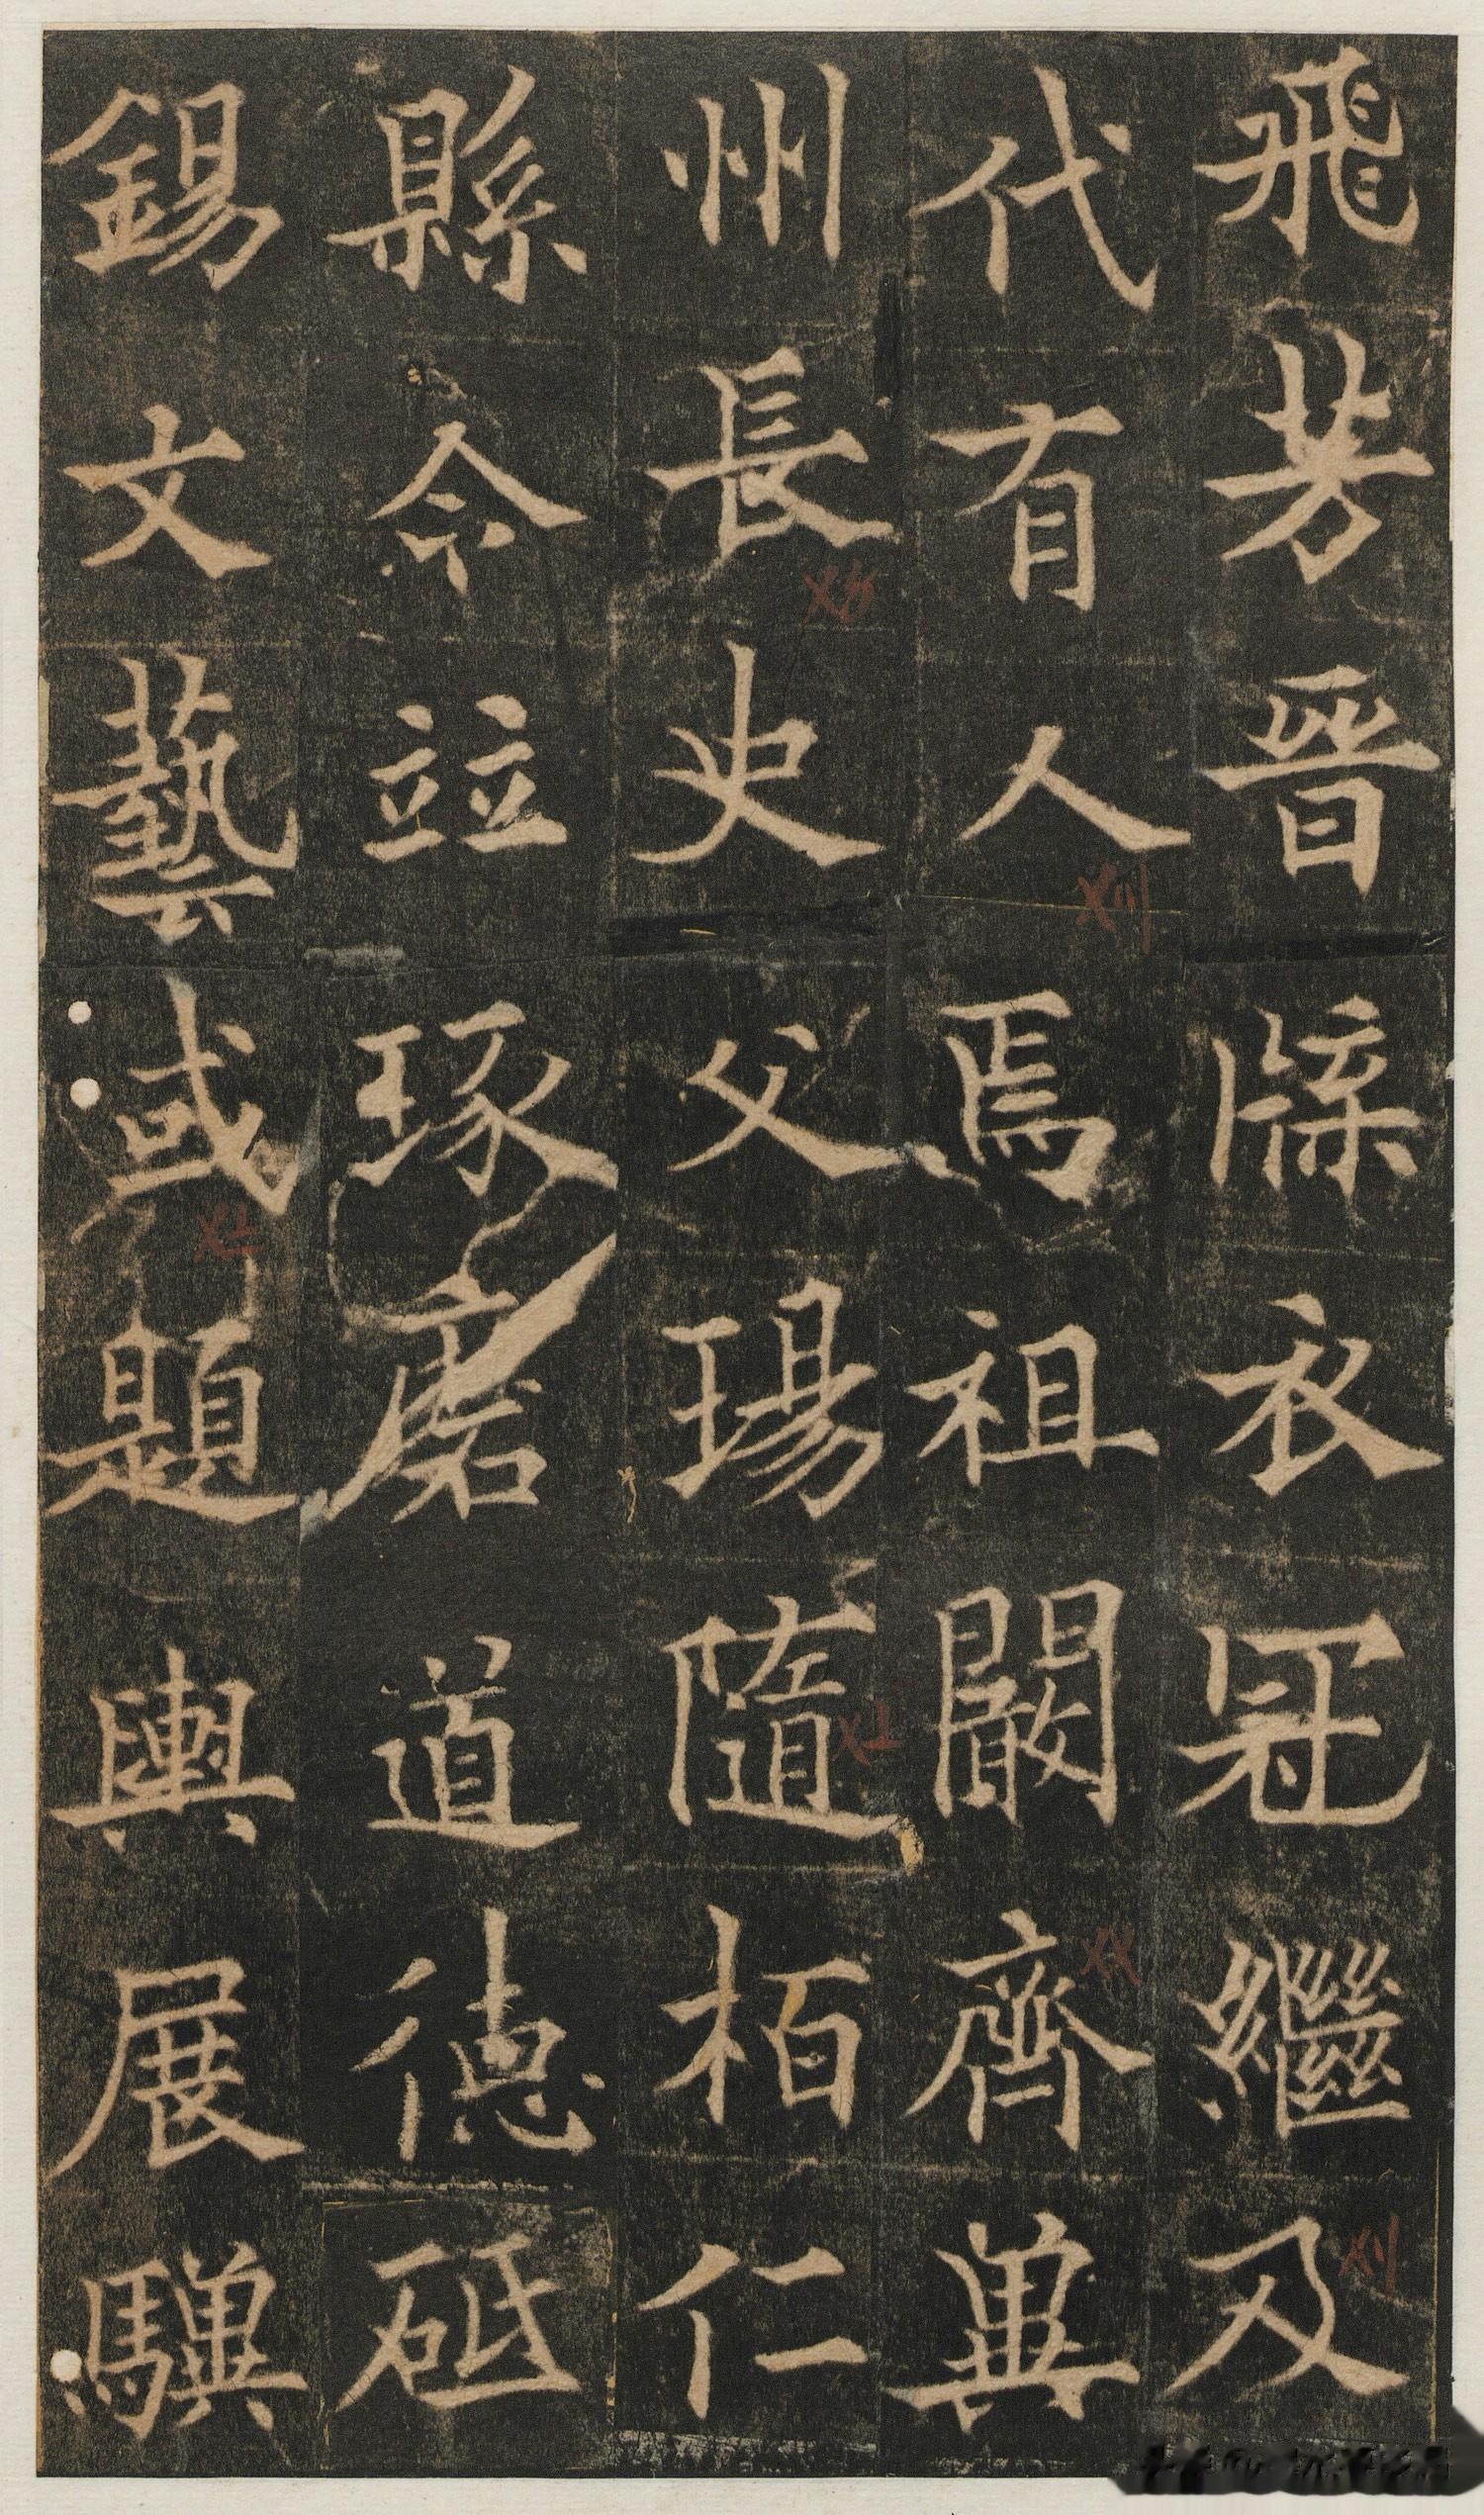 飛芳晉牒衣冠繼及
代有人焉祖闞齊兾
州長史父瑒隨柏仁
縣令竝琢磨道德砥
錫文藝或題輿展驥